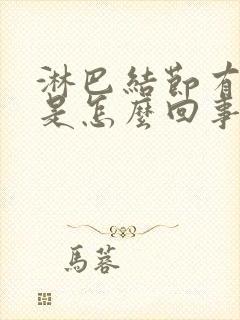 淋巴結節有
是怎麼回事
馬蓉